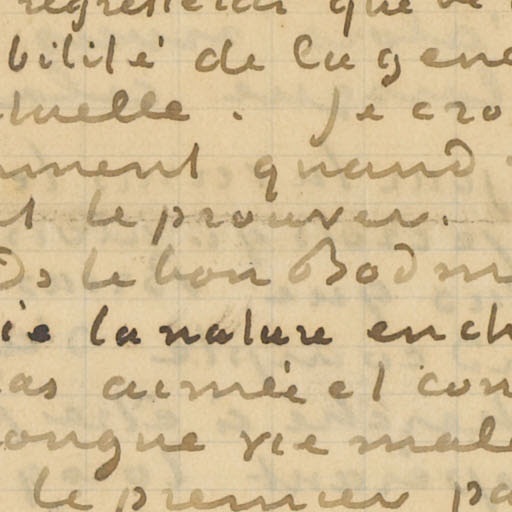 regretterai que
bilité de la gene
tuelle. Je cro
mment quand
t le prouver.
Ds le bon Bodm
ie la nature ench
as aimée et con
longue vie mal
le premier pa